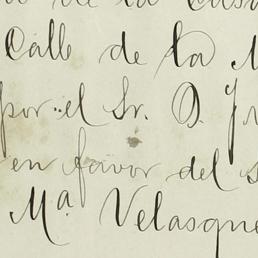 de la Casa
Calle de la
por el Sr. D.
en favor del
Mª Velasque